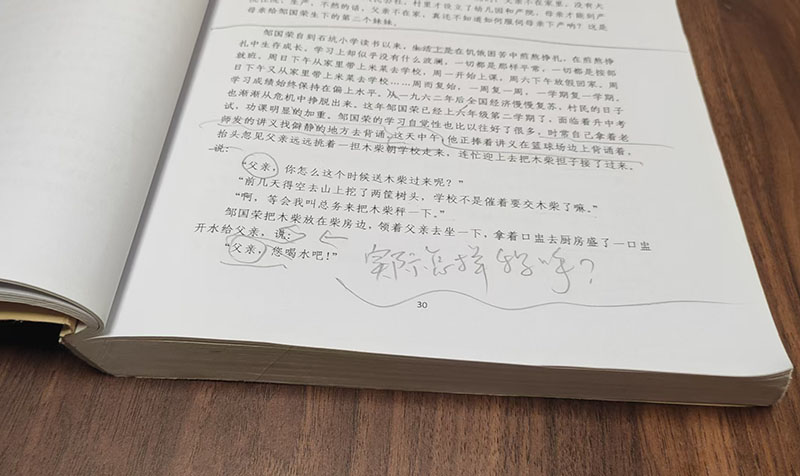 母亲给邹国荣生下的第二个妹妹。
邹国荣自到石坑小学读书以来，生活上是在饥饿困苦中煎熬挣扎，在煎熬挣
扎中生存成长。学习上却似乎没有什么波澜，一切都是那样平常，一切都是按部
就班。周日下午从家里带上米菜去学校，周一开始上课，周六下午放假回家。周
日下午又从家里带上米菜去学校……周而复始，一周复一周，一学期复一学期，
学习成绩始终保持在偏上水平。从一九六二年后全国经济慢慢复苏，村民的日子
也渐渐从危机中挣脱出来。这年邹国荣已经上六年级第二学期了，面临着升中考
试，功课明显的加重。邹国荣的学习自觉性也比以往好了很多，时常自己拿着老
师发的讲义找僻静的地方去背诵，这天中午，他正捧着讲义在篮球场边上背诵着，
抬头忽见父亲远远挑着一担木柴朝学校走来，连忙迎上去把木柴担子接了过来，
说：
“父亲，你怎么这个时候送木柴过来呢？”
“前几天得空去山上挖了两筐树头，学校不是催着要交木柴了嘛。”
“啊，等会我叫总务来把木柴秤一下。”
邹国荣把木柴放在柴房边，领着父亲去坐一下，拿着口盅去厨房盛了一口盅
开水给父亲，说：
“父亲，您喝水吧！”
实际怎样称呼？
30